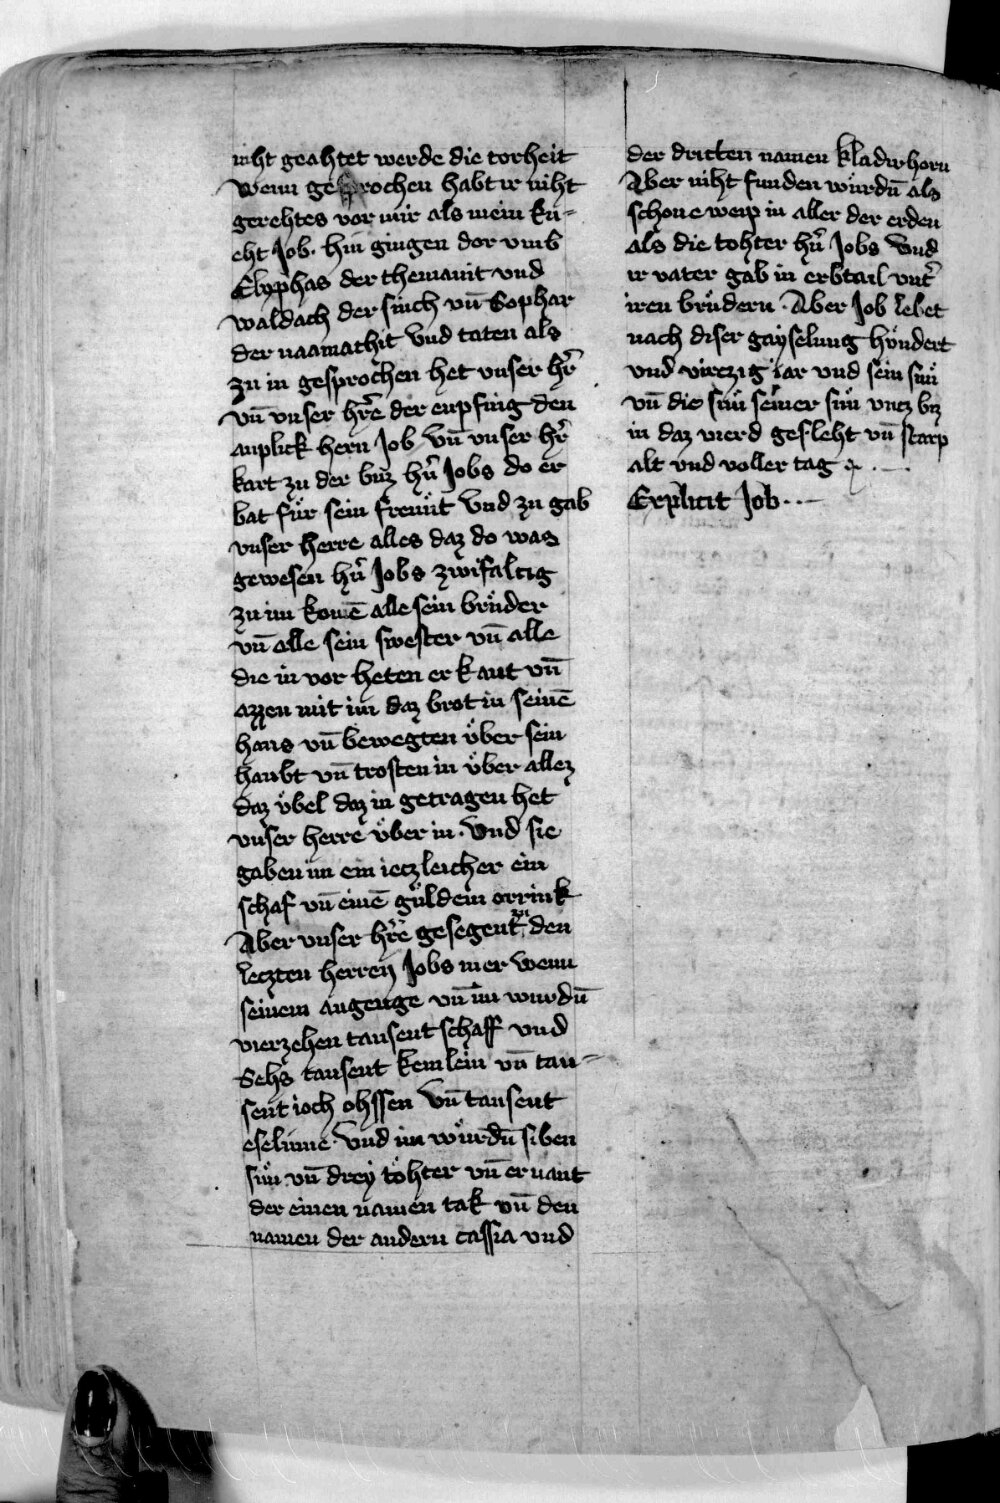 niht geahtet werde die torheit
Wenn gesprochen habt ir niht
gerehtes vor mir als mein kn=
eht Job. hin gingen dor vmb
Elyphas der themanit vnd
waldach der sinch vn̄ Sophar
der naamathit Vnd taten als
zu in gesprochen het vnser hr̄
vn̄ vnser hr̄e der enpfing den
anplick hern Job Vn̄ vnser hr̄
kart zu der buz hn̄ Jobs do er
bat fuͤr sein freuͤnt Vnd zu gab
vnser herre alles daz do was
gewesen hn̄ Jobs zwifaltig
zu im komē alle sein bruͤder
vn̄ alle sein swester vn̄ alle
die in vor heten er kant vn̄
azzen mit im daz brot in seinē
haus vn̄ bewegten uͤber sein
haubt vn̄ trosten in uͤber allez
daz uͤbel daz in getragen het
vnser herre uͤber in. Vnd sie
gaben im ein ieczleicher ein
schaf vn̄ einē guͤldein orrink
Aber vnser hr̄e gesegent den
leczten herren Jobs mer wenn
seinem angenge vn̄ im wurdn̄
vierzehen tausent schaff vnd
Sehs tausent kemlein vn̄ tau=
sent ioch ohssen Vn̄ tausent
eselinne. Vnd im wuͤrdn̄ siben
suͤn vn̄ drey toͤhter vn̄ er nant
der einen namen tak vn̄ den
namen der andern cassia vnd
der dritten namen kladirhorn
Aber niht funden wuͤrdn̄ als
schone weip in aller der erden
als die tohter hn̄ Jobs Vnd
ir vater gab in erbtail vnt̄
iren bruͤdern. Aber Job lebet
nach diser gayselung huͤndert
vnd virczig iar vnd sein suͤn
vn̄ die suͤn seiner suͤn vncz biz
in daz vierd gesleht vn̄ starp
alt vnd voller tag
Explicit Job..